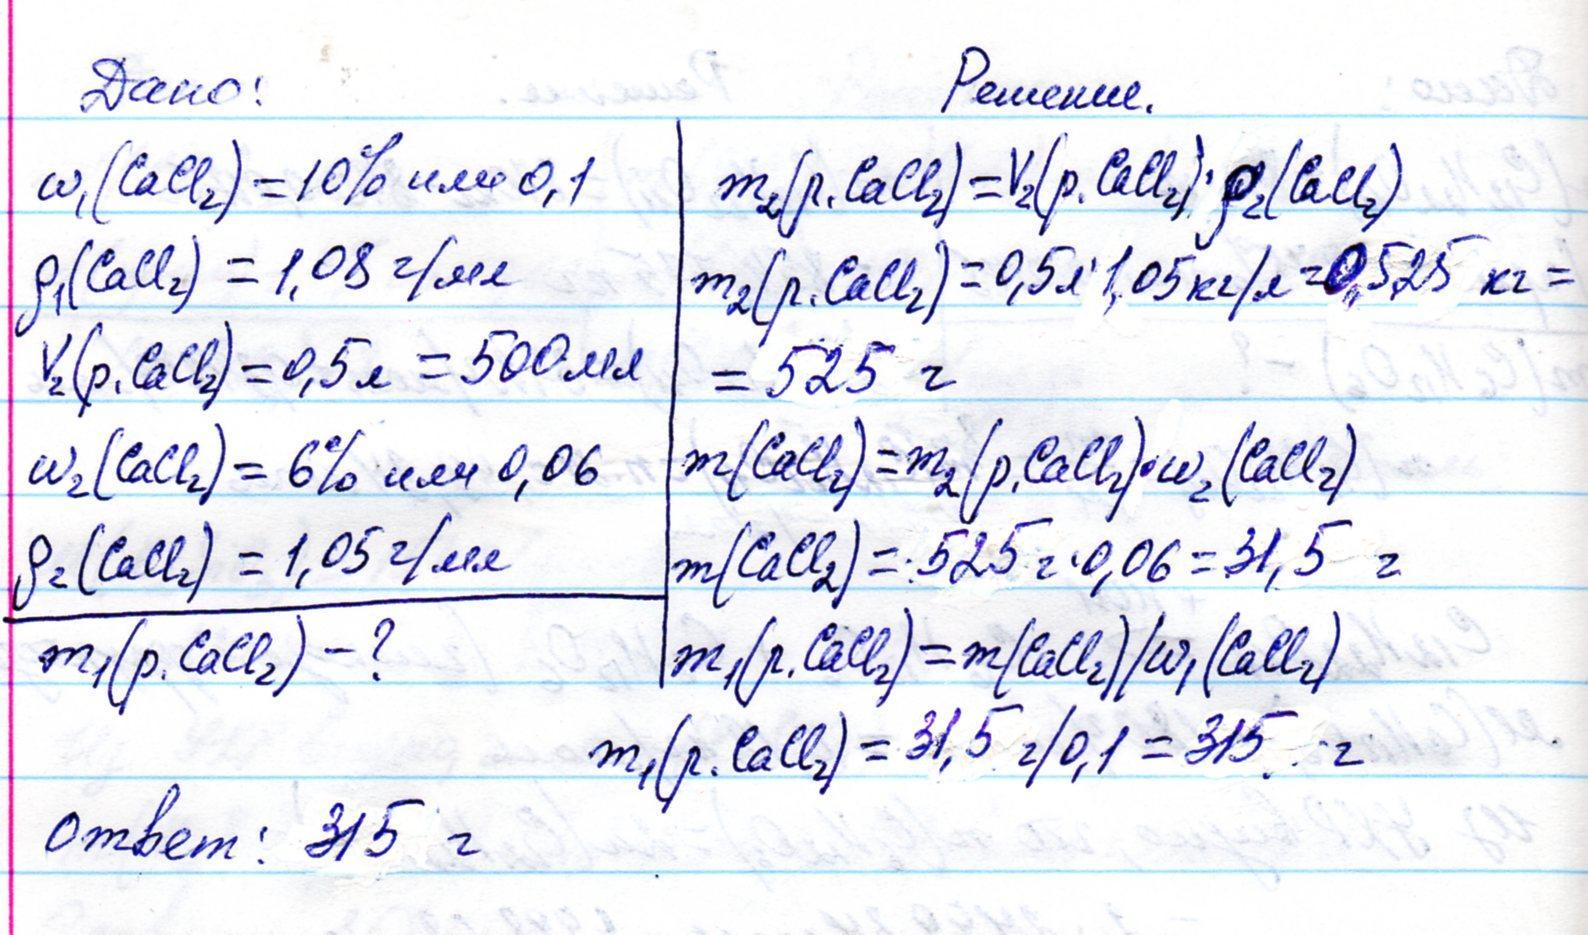 Дано:
ω₁(CaCl₂) = 10% или 0,1
ρ₁(CaCl₂) = 1,08 г/мл
V₂(р.CaCl₂) = 0,5л = 500мл
ω₂(CaCl₂) = 6% или 0,06
ρ₂(CaCl₂) = 1,05 г/мл
m₁(р.CaCl₂) – ?
Решение.
m₂(р.CaCl₂) = V₂(р.CaCl₂)·ρ₂(CaCl₂)
m₂(р.CaCl₂) = 0,5л·1,05кг/л = 0,525 кг =
= 525 г
m(CaCl₂) = m₂(р.CaCl₂)·ω₂(CaCl₂)
m(CaCl₂) = 525 г·0,06 = 31,5 г
m₁(р.CaCl₂) = m(CaCl₂)/ω₁(CaCl₂)
m₁(р.CaCl₂) = 31,5 г/0,1 = 315 г
Ответ: 315 г